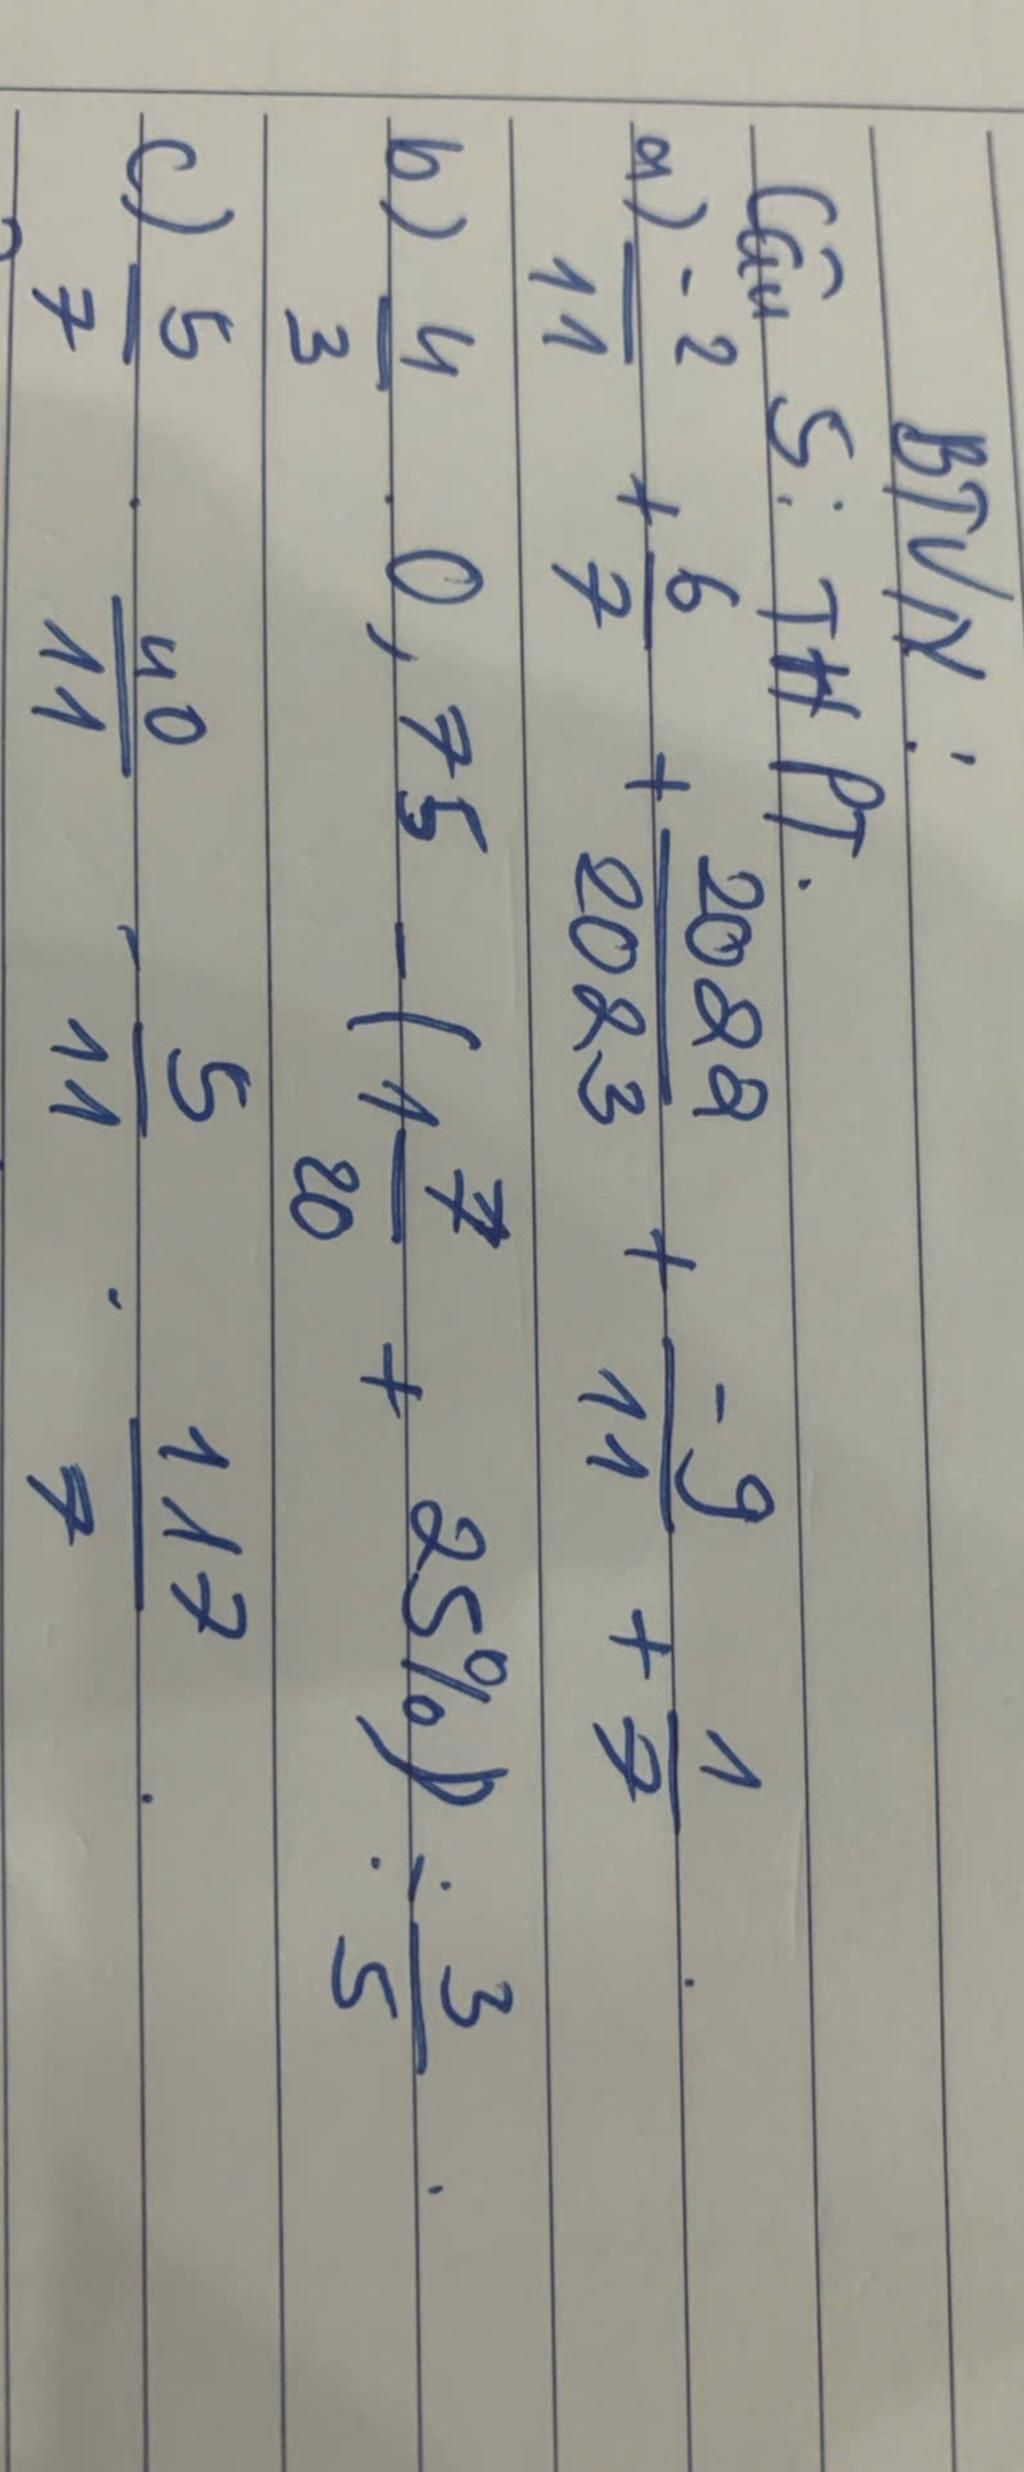 BTVN:
Câu 5: TH PT.
a) -2/11 + 6/7 + 2022/2023 + -9/11 + 1/7.
b) 4/3 . 0,75 - (1 7/20 + 25%) : 3/5.
c) 5/7 . 40/11 - 5/11 . 117/7.